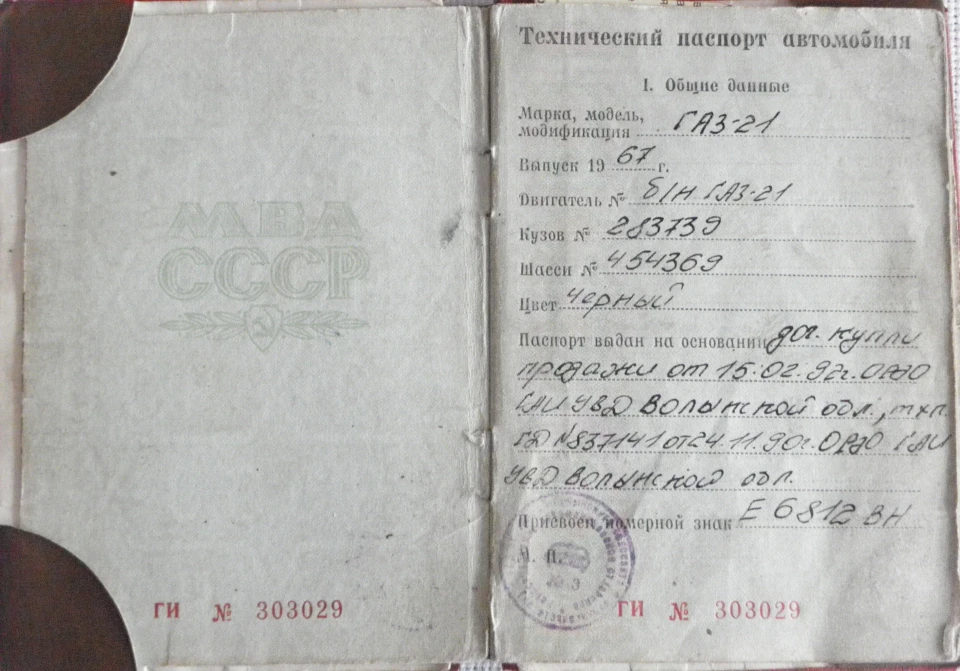 МВД
СССР
ГИ № 303029
Технический паспорт автомобиля
I. Общие данные
Марка, модель,
модификация ГАЗ-21
Выпуск 1967 г.
Двигатель № б/н ГАЗ-21
Кузов № 283739
Шасси № 454369
Цвет черный
Паспорт выдан на основании дог. купли
продажи от 15.02.92г. ОРЭО
ГАИ УВД Волынской обл., тхп.
ГД №837141 от 24.11.90г. ОРЭО ГАИ
УВД Волынской обл.
Присвоен номерной знак Е 6812 ВН
М. П.
ГИ № 303029